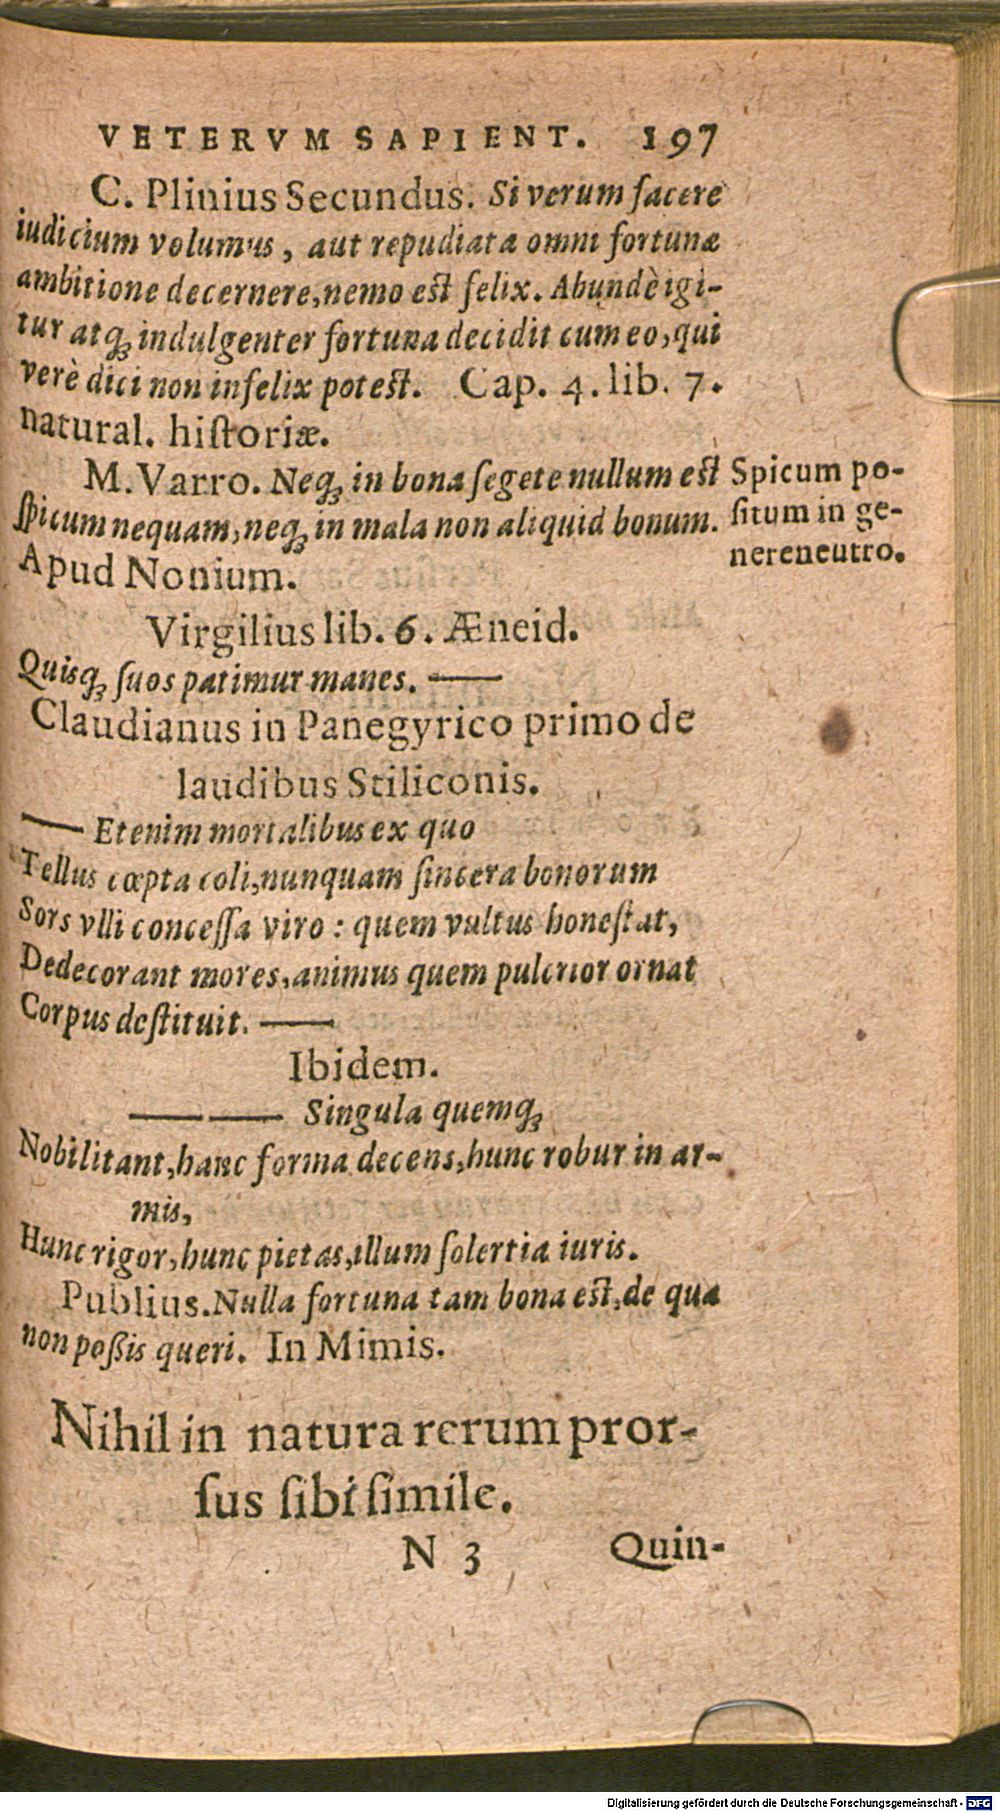 VETERVM SAPIENT. 197
C. Plinius Secundus. Si verum facere
iudicium volumus, aut repudiata omni fortunæ
ambitione decernere, nemo est felix. Abundè igi-
tur atq; indulgenter fortuna decidit cum eo, qui
verè dici non infelix potest. Cap. 4. lib. 7.
natural. historiæ.
M. Varro. Neq; in bona segete nullum est
spicum nequam, neq; in mala non aliquid bonum.
Apud Nonium.
Spicum po-
situm in ge-
nere neutro.
Virgilius lib. 6. Æneid.
Quisq; suos patimur manes. ——
Claudianus in Panegyrico primo de
laudibus Stiliconis.
—— Etenim mortalibus ex quo
Tellus cœpta coli, nunquam sincera bonorum
Sors vlli concessa viro: quem vultus honestat,
Dedecorant mores, animus quem pulcrior ornat
Corpus destituit. ——
Ibidem.
—— —— Singula quemq;
Nobilitant, hanc forma decens, hunc robur in ar-
mis,
Hunc rigor, hunc pietas, illum solertia iuris.
Publius. Nulla fortuna tam bona est, de qua
non poßis queri. In Mimis.
Nihil in natura rerum pror-
sus sibi simile.
N 3 Quin-
Digitalisierung gefördert durch die Deutsche Forschungsgemeinschaft - DFG